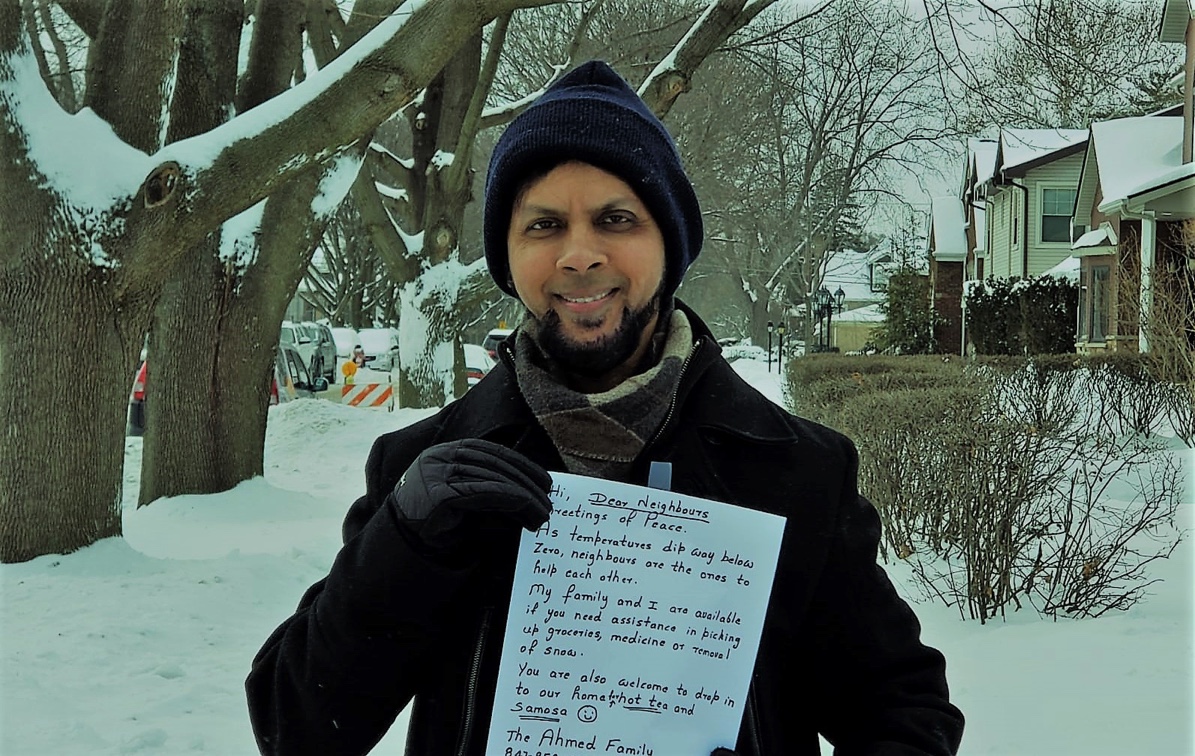 Hi, Dear Neighbours
Greetings of Peace.
As temperatures dip way below
Zero, neighbours are the ones to
help each other.
My family and I are available
if you need assistance in picking
up groceries, medicine or removal
of snow.
You are also welcome to drop in
to our home for hot tea and
Samosa
The Ahmed Family